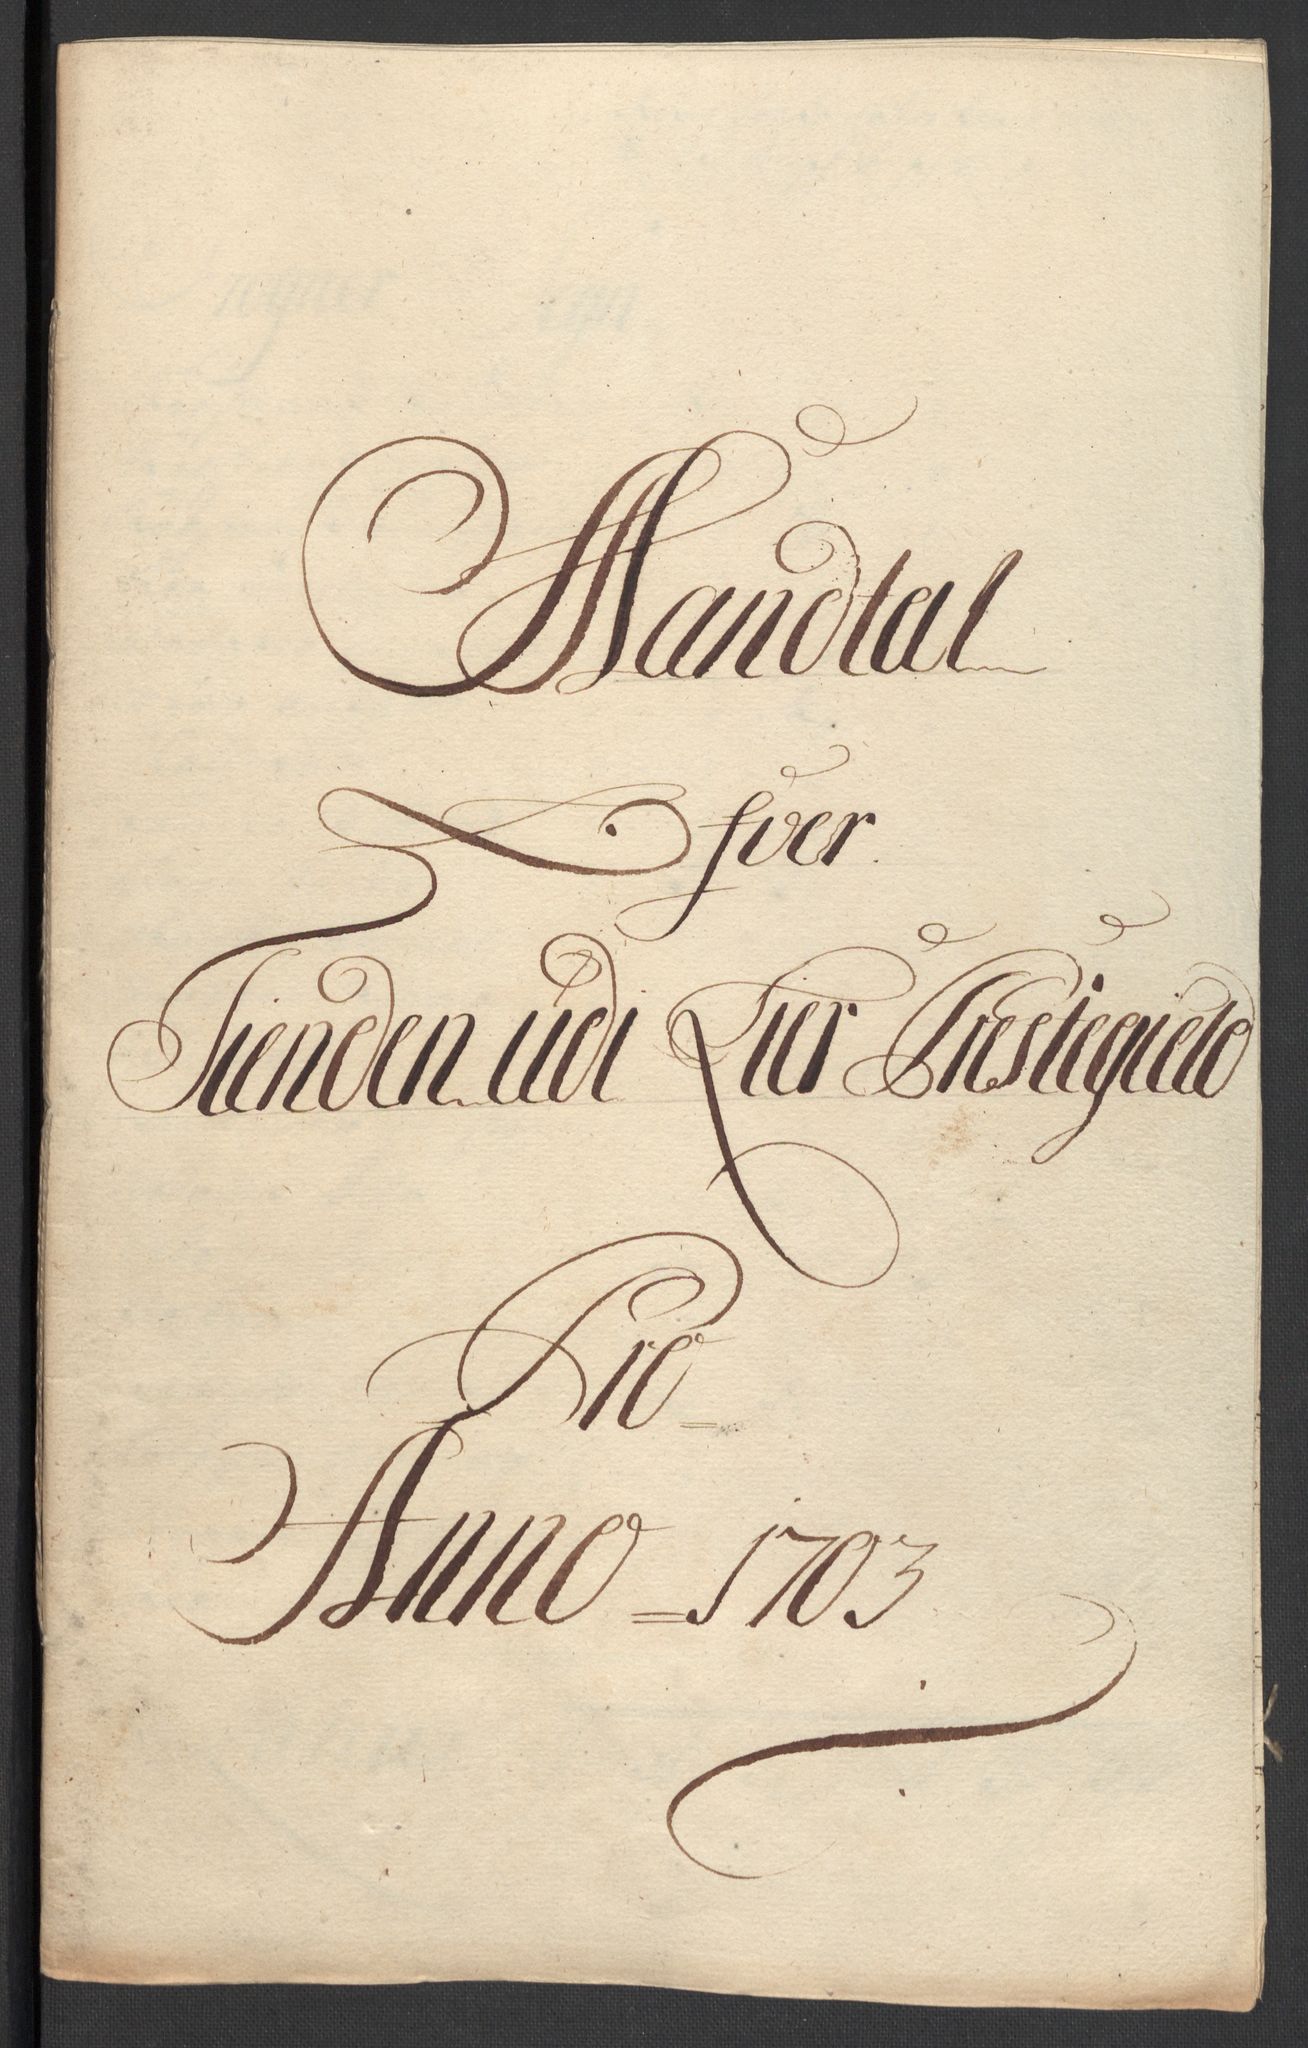 Mandtal
Ofver
Tienden udi Lier Præstegield
Pro
Anno = 1703